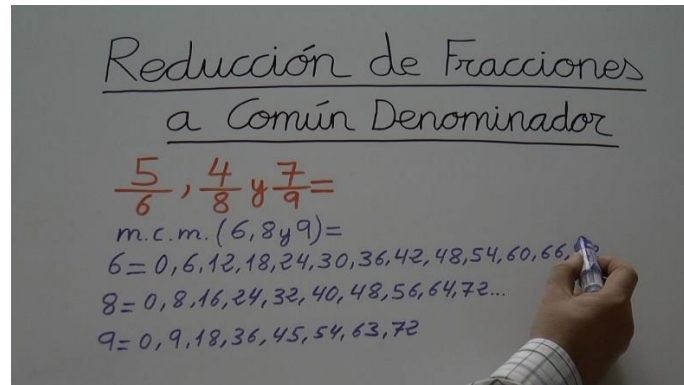 Reducción de Fracciones
a Común Denominador
5/6, 4/8 y 7/9=
m.c.m.(6,8y9)=
6=0,6,12,18,24,30,36,42,48,54,60,66,
8=0,8,16,24,32,40,48,56,64,72...
9=0,9,18,36,45,54,63,72